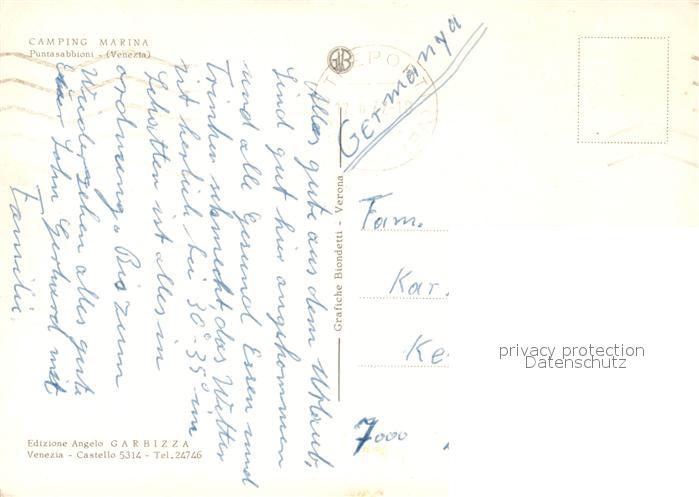 CAMPING MARINA
Puntasabbioni - (Venezia)
Alles gute aus dem Urlaub,
sind gut hier angekommen
und alle Gesund Essen und
Trinken schmeckt, das Witter
ist herlich bei 30°-35° im
Schatten ist alles in
ordnung. Bis zum
Wiedersehen alles gute
Euer Sohn Gerhard mit
Familie.
Grafiche Biondetti - Verona
Germanya
Fam.
Kar.
Ke
7000
privacy protection
Datenschutz
Edizione Angelo GARBIZZA
Venezia - Castello 5314 - Tel. 24746